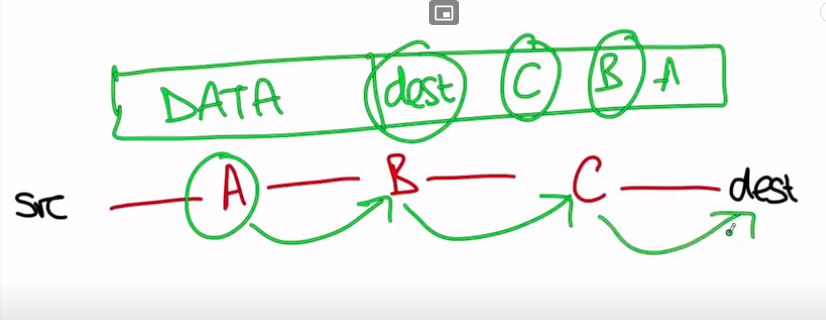 DATA dest C B A
src A B C dest